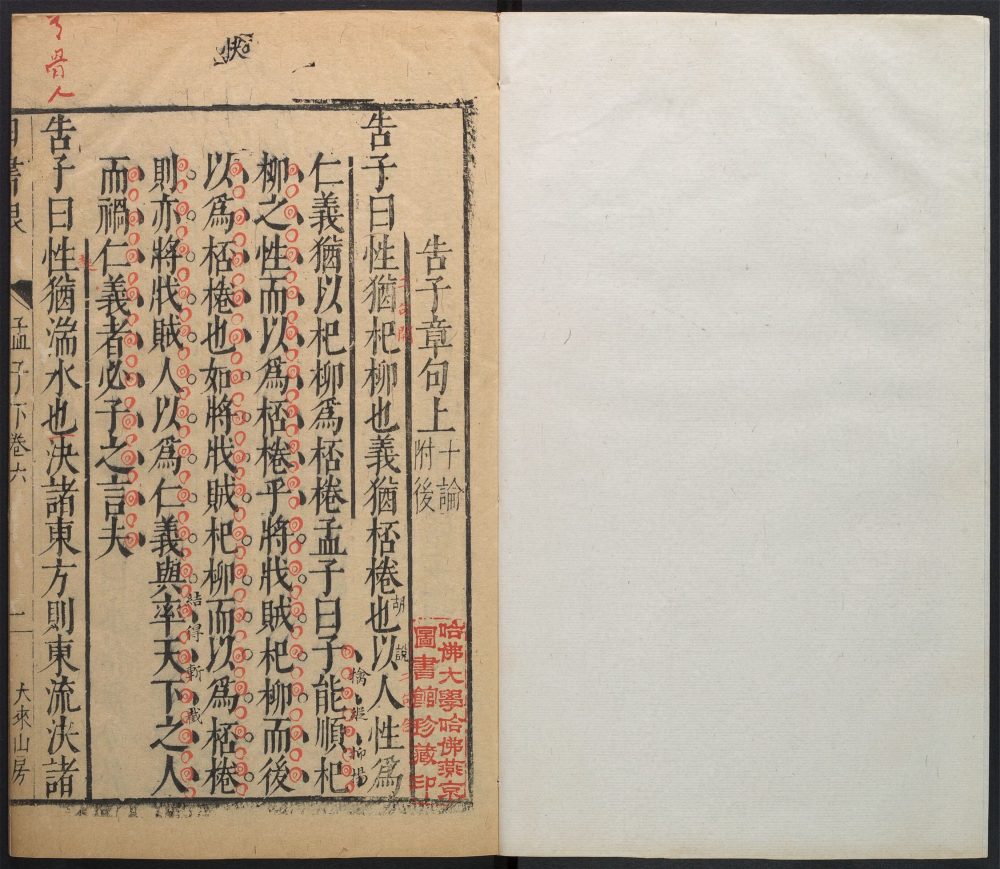 快
告子章句上 十論附後
告子曰性猶杞柳也義猶桮棬也以人性爲
胡說
仁義猶以杞柳爲桮棬孟子曰子能順杞
擒縱抑揚
柳之性而以爲桮棬乎將戕賊杞柳而後
以爲桮棬也如將戕賊杞柳而以爲桮棬
則亦將戕賊人以爲仁義與率天下之人
結得斬截
而禍仁義者必子之言夫
告子曰性猶湍水也決諸東方則東流決諸
孟子下卷六
一
大來山房
哈佛大學哈佛燕京
圖書館珍藏印